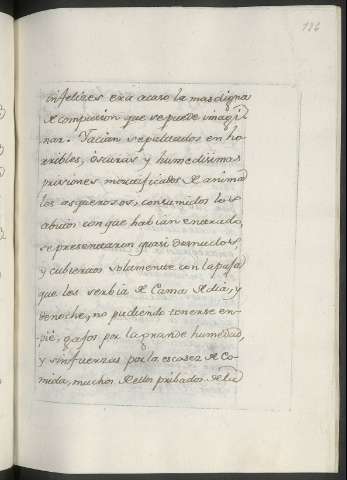 186
infelizes era acaso la mas digna
de compasion que se puede imagi-
nar. Yacian sepultados en ho-
rribles, oscuras y humedisimas
prisiones mortificados de anima
les asquerosos, consumidos los
con que habian entrado,
se presentaron quasi desnudos
y cubiertos solamente con la paja
que les serbia de Cama de dia, y
de noche, no pudiendo tenerse en-
pie, gafos por la grande humedad,
y sin fuerzas por la escasez de Co-
mida, muchos de ellos pribados de la